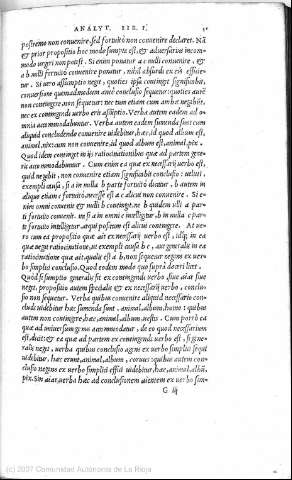 ANALYT. LIB. I.
postremo non conuenire, sed fortuitò non conuenire declaret. Nã
& prior propositio hoc modo sumpta est, & aduersarius incom-
modo urgeri non potest. Si enim ponatur a c illi conuenire, &
a b illi fortuitò conuenire ponatur, nihil absurdi ex eis efficie-
tur. Si uero assumptio neget, quoties ipsa contingit significabit,
conuersione quemadmodum antè conclusio sequetur: quoties autẽ
non contingere, non sequetur: nec tum etiam cum ambæ negabũt,
nec cx contingenti uerbo erit assumptio. Verba autem eadem ad o-
mnia accommodabuntur. Verba autem eadem sumenda sunt cum
aliquid concludende conuenire uidebitur, hæc, id quod album est,
animal, nix: cum non conuenire, id quod album est, animal, pix.
Quod idem continget in ijs ratiocinationibus quæ ad partem gene-
ris accommodabuntur. Cum enim ea quæ ex necessarij uerbo est,
quid negabit, non conuenire etiam significabit conclusio: ueluti,
exempli causa, si a in nulla b parte fortuitò dicatur, b autem in
aliquo c fortuitò, necesse est a c alicui non conuenire. Si e-
nim omni conuenit & nulli b contingit, ne b quidem ulli a par-
ti fortuitò conuenit.
ti fortuitò intelligitur, at qui positum est alicui contingere. At ue-
rò cum ea propositio quæ ait ex necessarij uerbo est, idq; in ea
quæ negat ratiocinatione, ut exempli causa b c, aut generalis in ea
ratiocinatione quæ ait, qualis est a b, non sequetur negans ex uer-
bo simplici conclusio. Quod eodem modo quo suprà docui licet.
Quod si sumptio generalis sit ex contingendi uerbo, siue aiat siue
neget, propositio autem specialis & ex necessarij uerbo, conclu-
sio non sequetur. Verba quibus conuenire aliquid necessario con-
cludi uidebitur hæc sumenda sunt, animal, album, homo: quibus
autem non contingere, hæc, animal, album, uestis. Cum porrò ea
quæ ad uniuersum genus accommodatur, de eo quod necessarium
est, dicit: & ea quæ ad partem ex contingendi uerbo est, si gene-
ralis neget, uerba quibus conclusio aiens ex uerbo simplici sequi
uidebitur, hæc erunt, animal, album, coruus: quibus autem con-
clusio negans ex uerbo simplici effici uidebitur, hæc, animal, albũ,
pix. Sin aiat, uerba hæc ad conclusionem aientem ex uerbo sim-
G iij
(c) 2007 Comunidad Autónoma de La Rioja